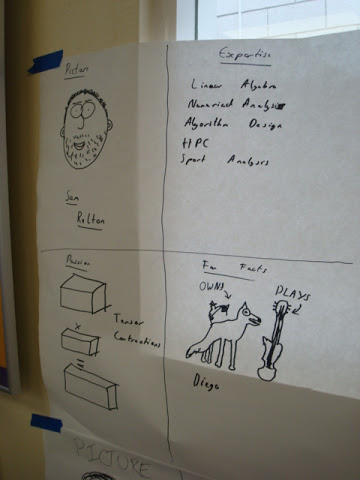 Picture
Sam
Relton
Expertise
Linear Algebra
Numerical Analysis
Algorithm Design
HPC
Sport Analysis
Passion
Tensor
Contractions
×
=
Fun Facts
OWNS
PLAYS
Diego
PICTURE